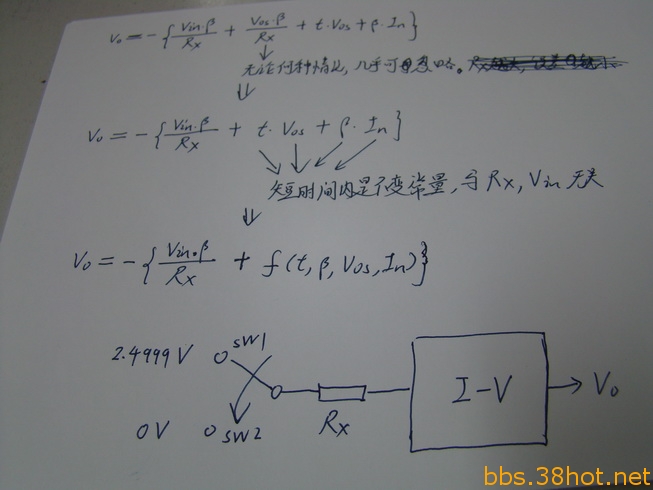 Vo = -{Vin·β/Rx + Vos·β/Rx + t·Vos + β·In}
无论何种情况, 几乎可忽略。
Vo = -{Vin·β/Rx + t·Vos + β·In}
短时间内是不变常量, 与Rx, Vin无关
Vo = -{Vin·β/Rx + f(t, β, Vos, In)}
2.4999V SW1
I-V Vo
0V SW2 Rx
bbs.38hot.net